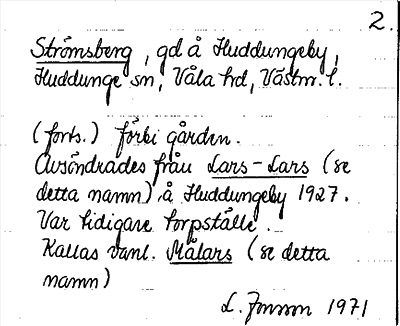 2.
Strömsberg, gd å Huddungeby,
Huddunge sn, Våla hd, Västm. l.
(forts.) förbi gården.
Avsöndrades från Lars-Lars (se
detta namn) å Huddungeby 1927.
Var tidigare torpställe.
Kallas vanl. Målars (se detta
namn)
L. Jonson 1971